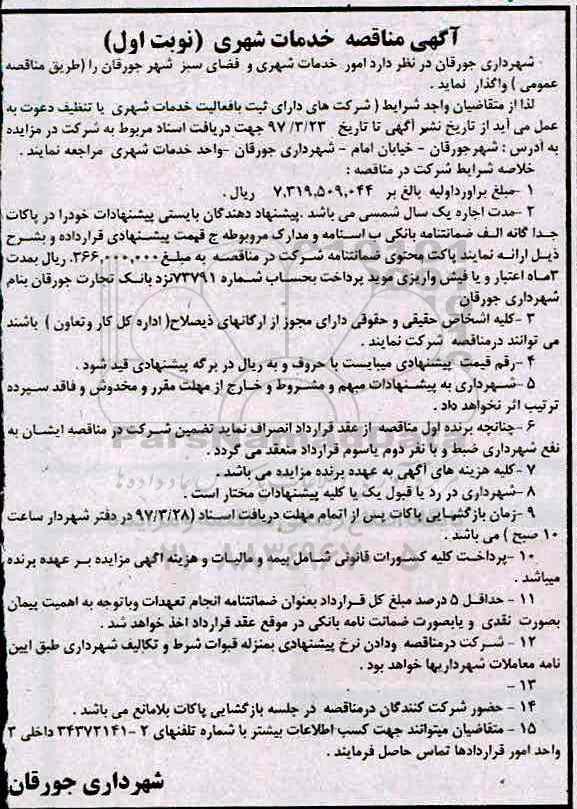 آگهی مناقصه خدمات شهری (نوبت اول)
شهرداری جورقان در نظر دارد امور خدمات شهری و فضای سبز شهر جورقان را (طریق مناقصه
عمومی) واگذار نماید .
لذا از متقاضیان واجد شرایط ( شرکت های دارای ثبت بافعالیت خدمات شهری یا تنظیف دعوت به
عمل می آید از تاریخ نشر آگهی تا تاریخ ۹۷/۳/۲۳ جهت دریافت اسناد مربوط به شرکت در مزایده
به آدرس : شهرجورقان - خیابان امام - شهرداری جورقان -واحد خدمات شهری مراجعه نمایند .
خلاصه شرایط شرکت در مناقصه :
۱ -مبلغ براورداولیه بالغ بر ۷،۳۱۹،۵۰۹،۰۴۴ ریال .
۲ -مدت اجاره یک سال شمسی می باشد .پیشنهاد دهندگان بایستی پیشنهادات خودرا در پاکات
جدا گانه الف ضمانتنامه بانکی ب اسنامه و مدارک مروبوطه ج قیمت پیشنهادی قرارداده و بشرح
ذیل ارائه نمایند پاکت محتوی ضمانتنامه شرکت در مناقصه به مبلغ ۳۶۶،۰۰۰،۰۰۰. ریال بمدت
۳ماه اعتبار و یا فیش واریزی موید پرداخت بحساب شماره ۷۳۷۹۱نزد بانک تجارت جورقان بنام
شهرداری جورقان
۳ -کلیه اشخاص حقیقی و حقوقی دارای مجوز از ارگانهای ذیصلاح( اداره کل کار وتعاون ) باشند
می توانند درمناقصه شرکت نمایند .
۴ -رقم قیمت پیشنهادی میبایست با حروف و به ریال در برگه پیشنهادی قید شود .
۵ -شهرداری به پیشنهادات مبهم و مشروط و خارج از مهلت مقرر و مخدوش و فاقد سپرده
ترتیب اثر نخواهد داد .
۶ -چنانچه برنده اول مناقصه از عقد قرارداد انصراف نماید تضمین شرکت در مناقصه ایشان به
نفع شهرداری ضبط و با نفر دوم یاسوم قرارداد منعقد می گردد .
۷ -کلیه هزینه های آگهی به عهده برنده مزایده می باشد .
۸ -شهرداری در رد یا قبول یک یا کلیه پیشنهادات مختار است .
۹ -زمان بازگشایی پاکات پس از اتمام مهلت دریافت اسناد (۹۷/۳/۲۸ در دفتر شهردار ساعت
۱۰ صبح ) می باشد .
۱۰ -پرداخت کلیه کسورات قانونی شامل بیمه و مالیات و هزینه اگهی مزایده بر عهده برنده
میباشد .
۱۱ - حداقل ۵ درصد مبلغ کل قرارداد بعنوان ضمانتنامه انجام تعهدات وباتوجه به اهمیت پیمان
بصورت نقدی و یابصورت ضمانت نامه بانکی در موقع عقد قرارداد اخذ خواهد شد .
۱۲ - شرکت درمناقصه ودادن نرخ پیشنهادی بمنزله قبوات شرط و تکالیف شهرداری طبق ایین
نامه معاملات شهرداریها خواهد بود .
۱۳ -
۱۴ - حضور شرکت کنندگان درمناقصه در جلسه بازگشایی پاکات بلامانع می باشد .
۱۵ - متقاضیان میتوانند جهت کسب اطلاعات بیشتر با شماره تلفنهای ۲ -۳۴۳۷۲۱۴۱ داخلی ۳
واحد امور قراردادها تماس حاصل فرمایند .
شهرداری جورقان
ParsNamadData